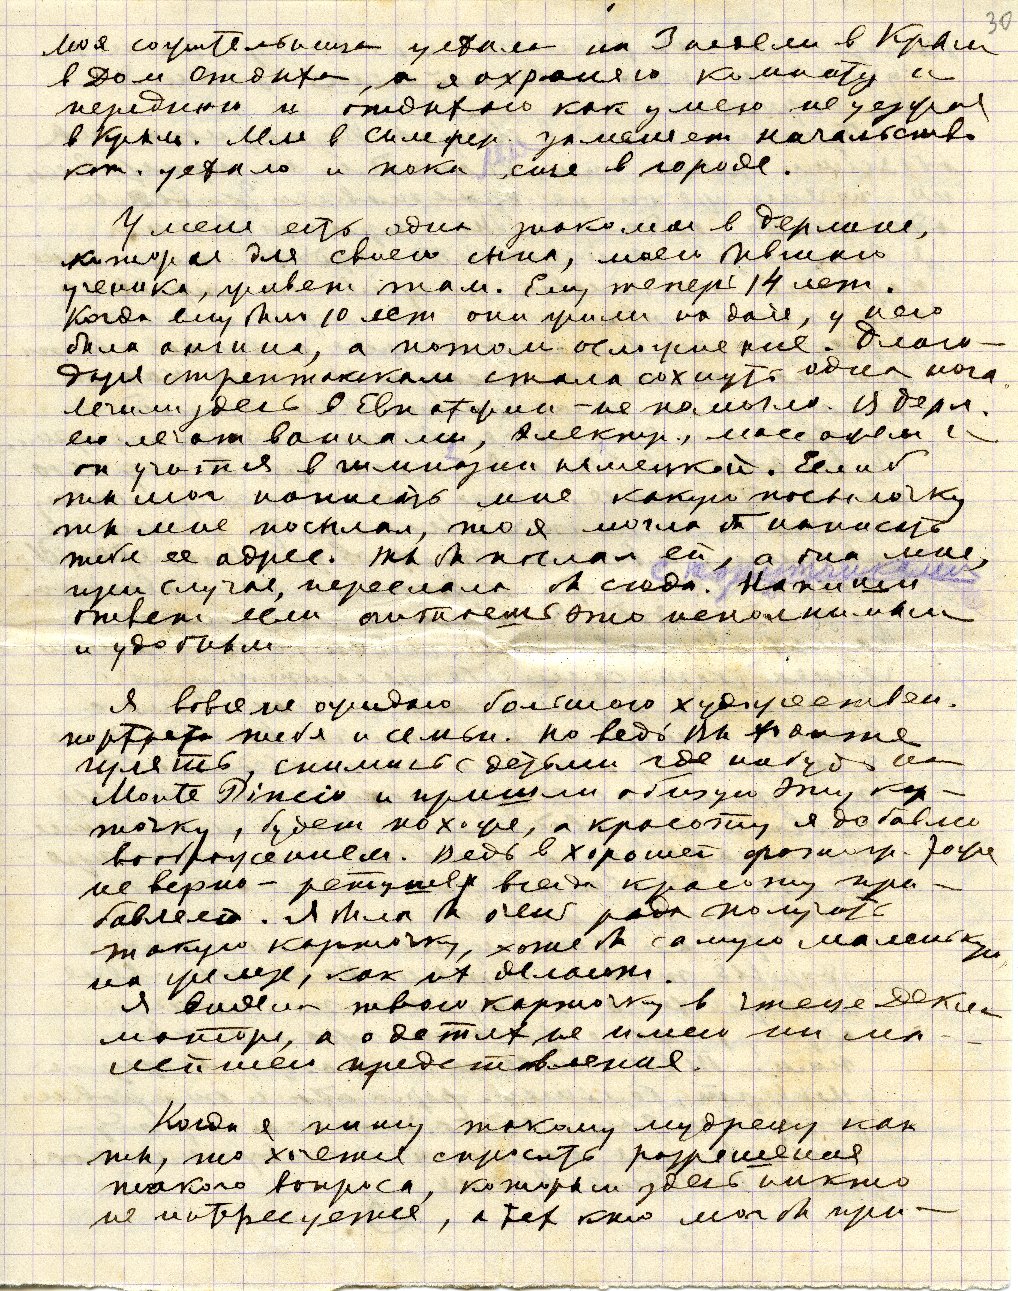 30
Моя сожительница уехала на 3 недели в Крым
в Дом отдыха, а я охраняю комнату и
переднюю и отдыхаю как умею не уезжая
в Крым. Меня в заменяет начальство
кот. уехало и пока еще в городе.
У меня есть одна знакомая в Берлине,
которая для своего сына, моего бывшего
ученика, живет там. Ему теперь 14 лет.
Когда ему было 10 лет они жили на даче, у него
была ангина, а потом осложнение. Благо-
даря стрептококкам стала сохнуть одна нога
лечили здесь в Евпатории – не помогло. В Берл.
его лечат ваннами, электр., массажем и
он учится в гимназии немецкой. Если б
ты мог написать мне какую посылочку
ты мне послал, то я могла б написать
тебе ее адрес. Ты бы послал ей, а она мне,
при случае, переслала бы сюда. Напиши
ответ если считаешь это исполнимым
и удобным
Я вовсе не ожидаю большого художествен.
портрета тебя и семьи. Но ведь Вы ходите
гулять, снимись с детьми где нибудь на
Monte Pincio и пришли обычную эту кар-
точку, будет похоже, а красоту я добавлю
воображением. Ведь в хорошей фотогр. тоже
не верно – ретушер всегда красоту при-
бавляет. Я была бы очень рада получить
такую карточку, хотя бы самую маленькую
как их делают.
Я видела твою карточку в чтеце декла-
маторе, а о детях не имею ни ма-
лейшего представления.
Когда я пишу такому мудрецу как
ты, то хочется спросить разрешения
такого вопроса, которым здесь никто
не интересуется, а тех кто мог бы при-